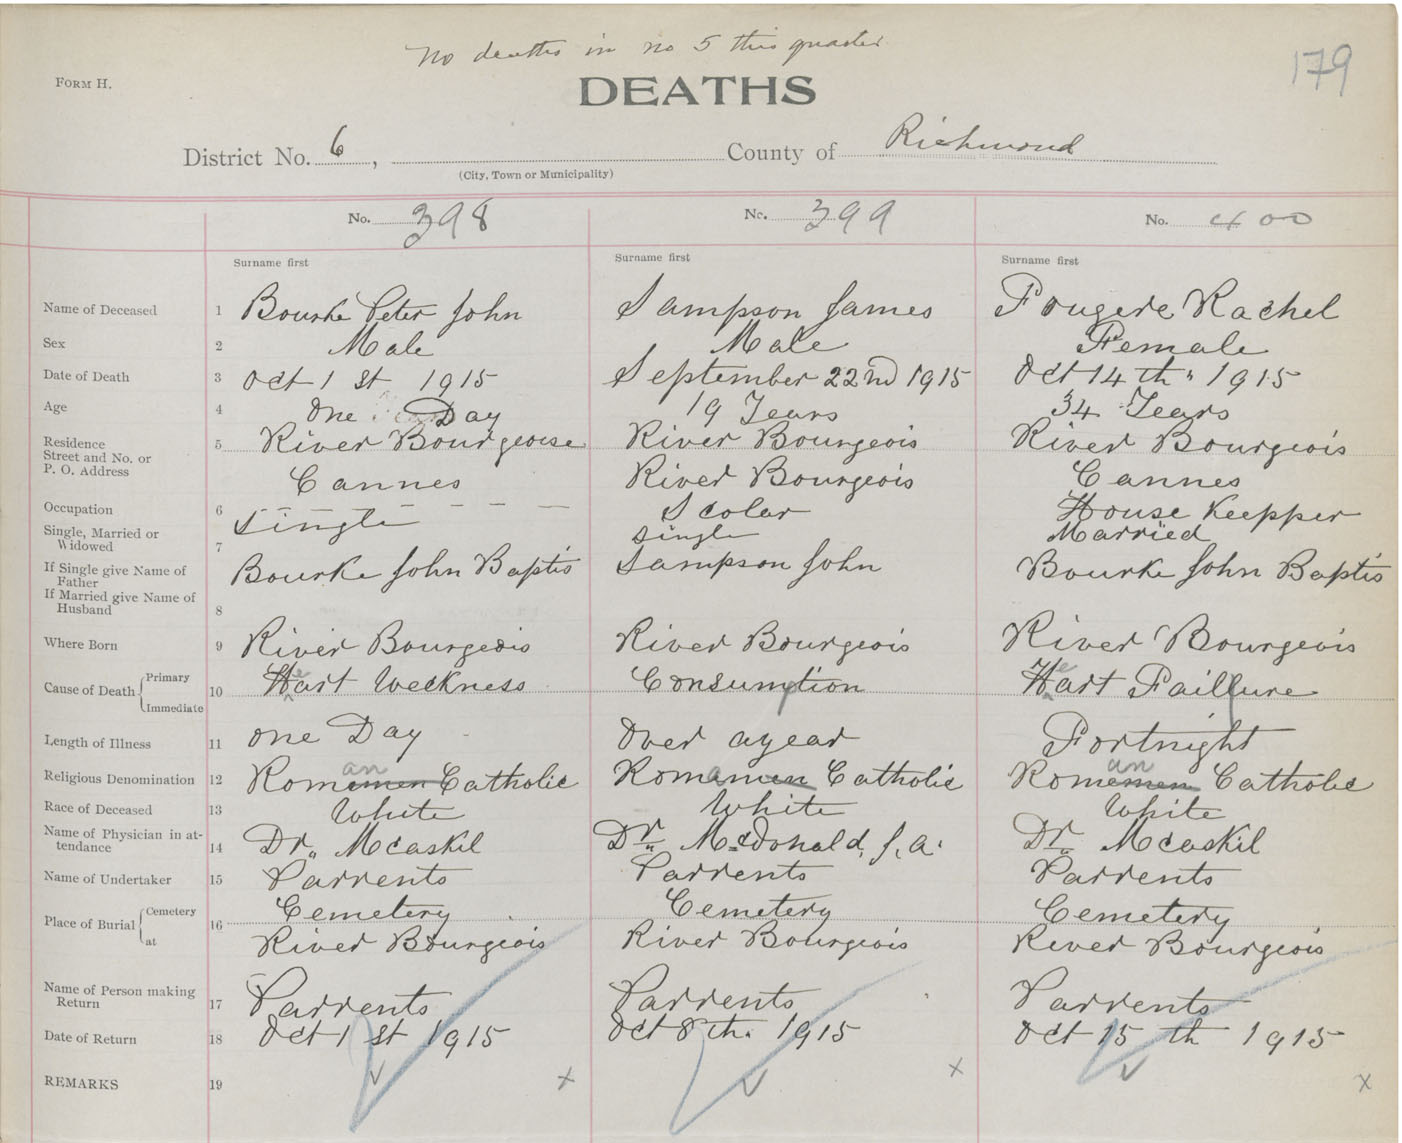 No deaths in no 5 this quarter
179
FORM H.
DEATHS
District No. 6, County of Richmond
(City, Town or Municipality)
No. 398 No. 399 No. 400
Surname first Surname first Surname first
Name of Deceased 1 Bourke Peter John Sampson James Fougere Rachel
Sex 2 Male Male Female
Date of Death 3 Oct 1 st 1915 September 22nd 1915 Oct 14 th 1915
Age 4 One Day 19 Years 34 Years
Residence 5 River Bourgeoise River Bourgeois River Bourgeois
Street and No. or
P. O. Address Cannes River Bourgeois Cannes
Occupation 6 – – – – Scolar House Keepper
Single, Married or
Widowed 7 Single Single Married
If Single give Name of
Father Bourke John Baptis Sampson John Bourke John Baptis
If Married give Name of
Husband 8
Where Born 9 River Bourgeois River Bourgeois River Bourgeois
Cause of Death { Primary 10 Heart Weekness Consumption Heart Faillure
Immediate
Length of Illness 11 One Day Over a year Fortnight
Religious Denomination 12 Roman Catholic Roman Catholic Roman Catholic
Race of Deceased 13 White White White
Name of Physician in at-
tendance 14 Dr,, Mcaskil Dr,, McDonald, J. A. Dr,, Mcaskil
Name of Undertaker 15 Parrents Parrents Parrents
Place of Burial { Cemetery 16 Cemetery Cemetery Cemetery
at River Bourgeois River Bourgeois River Bourgeois
Name of Person making
Return 17 Parrents Parrents Parrents
Date of Return 18 Oct 1 st 1915 Oct 8 th. 1915 Oct 15 th 1915
REMARKS 19 x x x